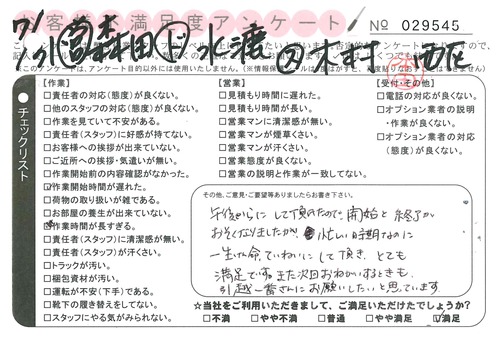 お客様不満足度アンケート
No 029545
7/1
水
営森田
水渡
木村
西区
チェックリスト
【作業】
□責任者の対応(態度)が良くない。
□他のスタッフの対応(態度)が良くない。
□作業を見ていて不安がある。
□責任者(スタッフ)に好感が持てない。
□お客様への挨拶が出来ていない。
□ご近所への挨拶・気遣いが無い。
□作業開始前の内容確認がなかった。
□作業開始時間が遅れた。
□荷物の取り扱いが雑である。
□お部屋の養生が出来ていない。
□作業時間が長すぎる。
□責任者(スタッフ)に清潔感が無い。
□責任者(スタッフ)が汗くさい。
□トラックが汚い。
□梱包資材が汚い。
□運転が不安(下手)である。
□靴下の履き替えをしてない。
□スタッフにやる気がみられない。
【営業】
□見積もり時間に遅れた。
□見積もり時間が長い。
□営業マンに清潔感が無い。
□営業マンが煙草くさい。
□営業マンが汗くさい。
□営業態度が良くない。
□営業の説明と作業が一致してない。
【受付・その他】
□電話の対応が良くない。
□オプション業者の説明
・作業が良くない。
□オプション業者の対応
(態度)が良くない。
その他、ご意見・ご要望等ありましたらお書き下さい。
午後からにして頂いたので、開始と終了が
おそくなりましたが、忙しい時期なのに
一生けん命ていねいにして頂き、とても
満足です。また次回おねがいするときも
引越一番さんにお願いしたいと思っています
★当社をご利用いただきまして、ご満足いただけたでしょうか?
□不満 □やや不満 □普通 □やや満足 □満足